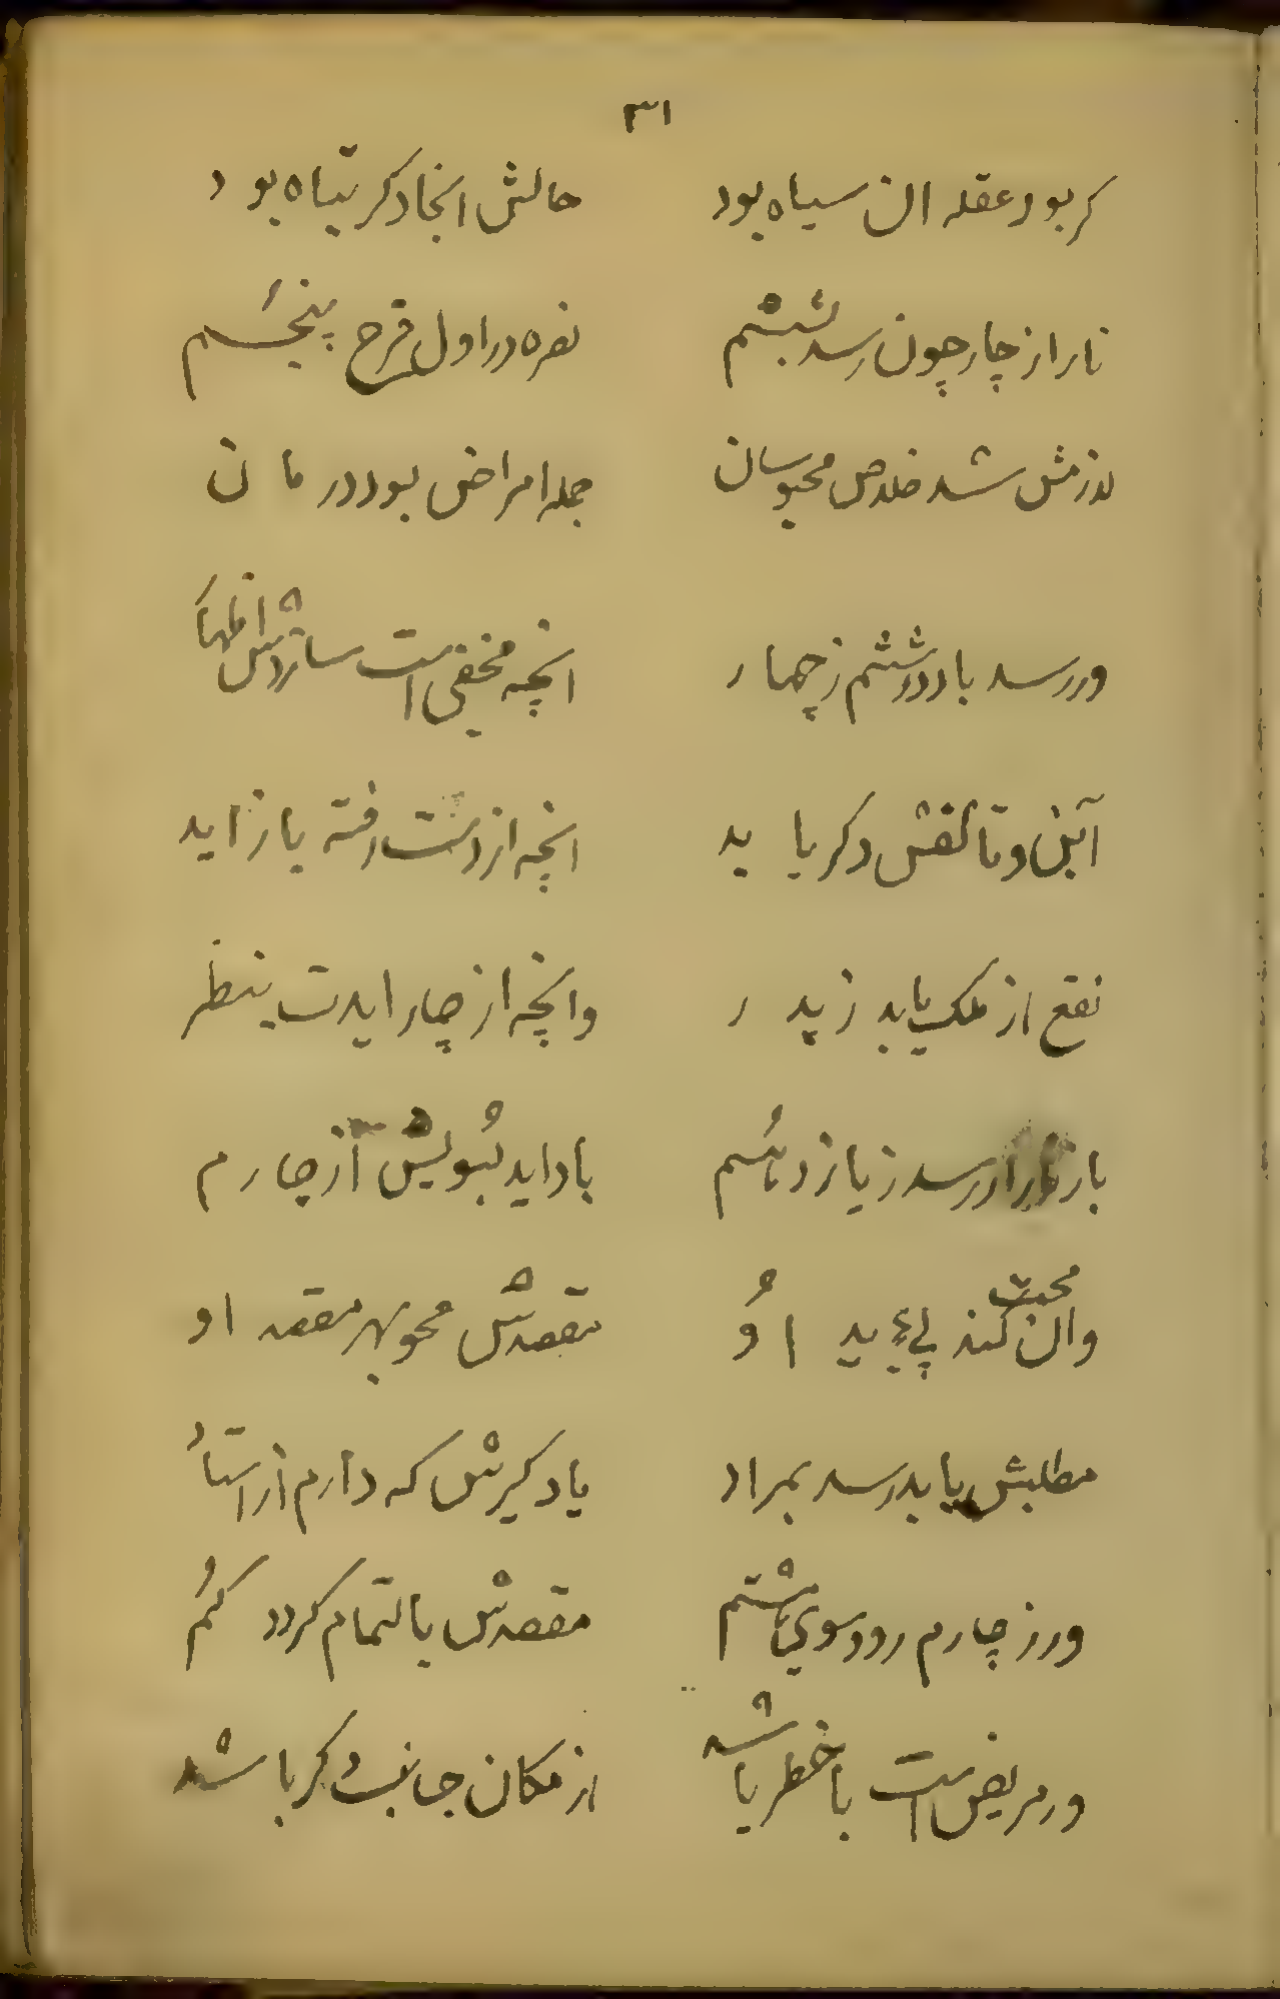 ٣١
کر بود عقله ان سیاه بود حالش انجا دکر تباه بود
نار از چار چون رسد بششم نصره در اول فرح پنجم
لازمش شد خلاص محبوسان جمله امراض بود درمان
ور رسد باد در ششم ز چهار انچه مخفی است سازدش اظهار
دکر یابد انچه از دست رفته باز اید
نفع از ملک یابد ز پدر وانچه از چار ایدت بنظر
باز نار ار رسد ز یازدهم باد اید بسویش از چارم
وان کند محبت او مقصدش محو بهر مقصد او
مطلبش یابد رسد بمراد یاد کیرش که دارم از استاد
ور ز چارم رود سوی هشتم مقصدش بالتمام کردد کم
ور مریض است با خطر باشد از مکان جانب دکر باشد